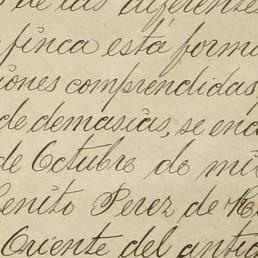 de las diferentes
finca está forma
iones comprendidas,
de demasias, se enc
de Octubre de mil
Benito Perez de
Oriente del antig